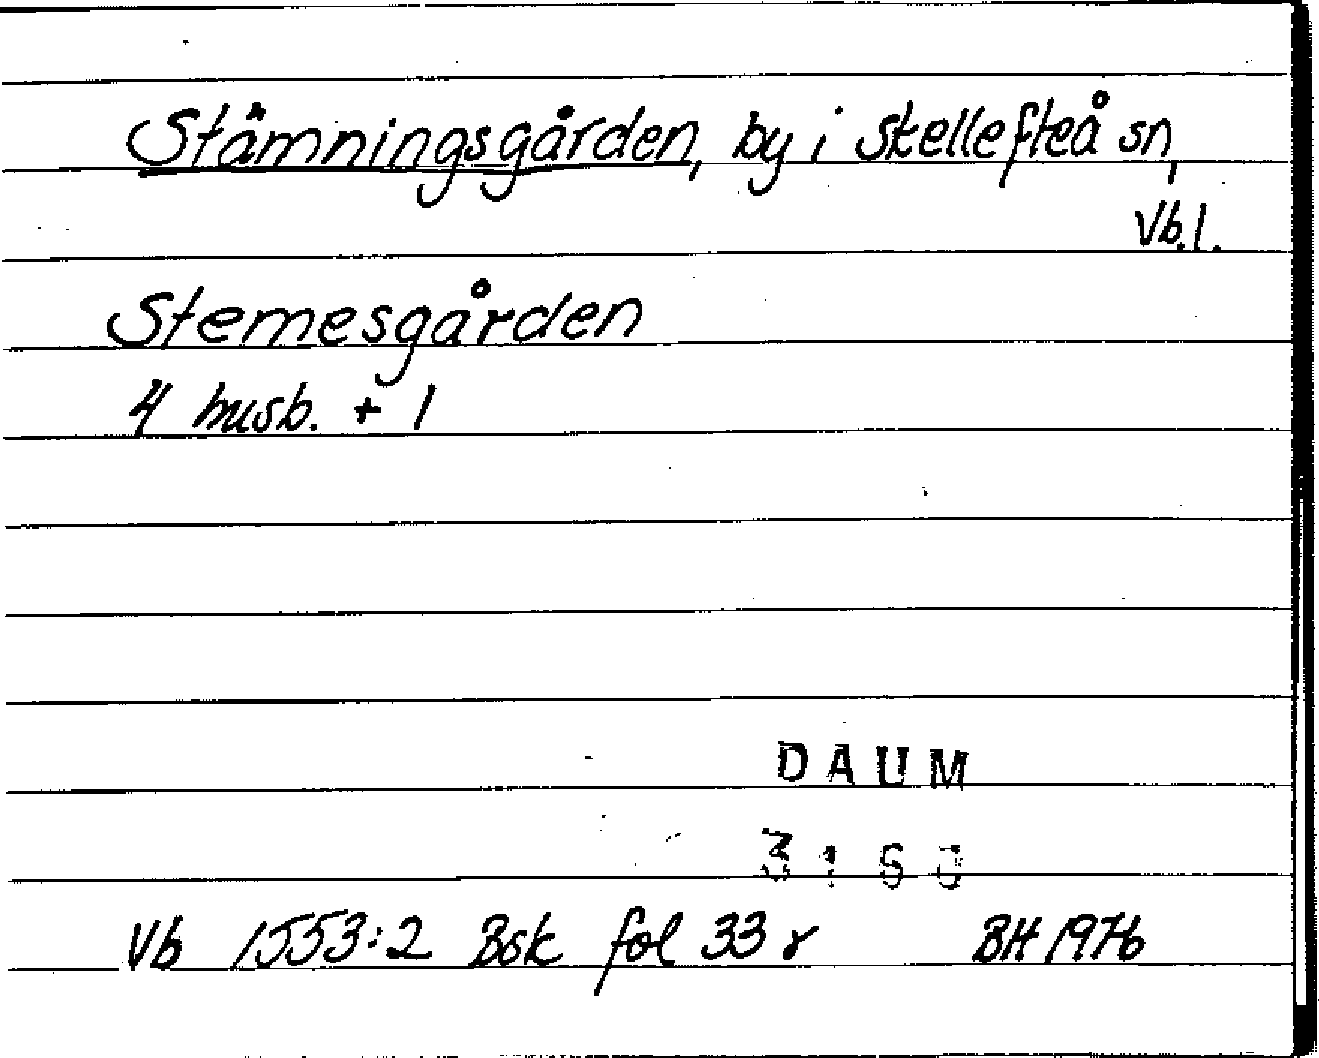 Stämningsgården, by i Skellefteå sn,
Vb.l.
Stemesgården
4 husb. + 1
DAUM
Vb 1553:2 Bsk fol 33 r BH 1976